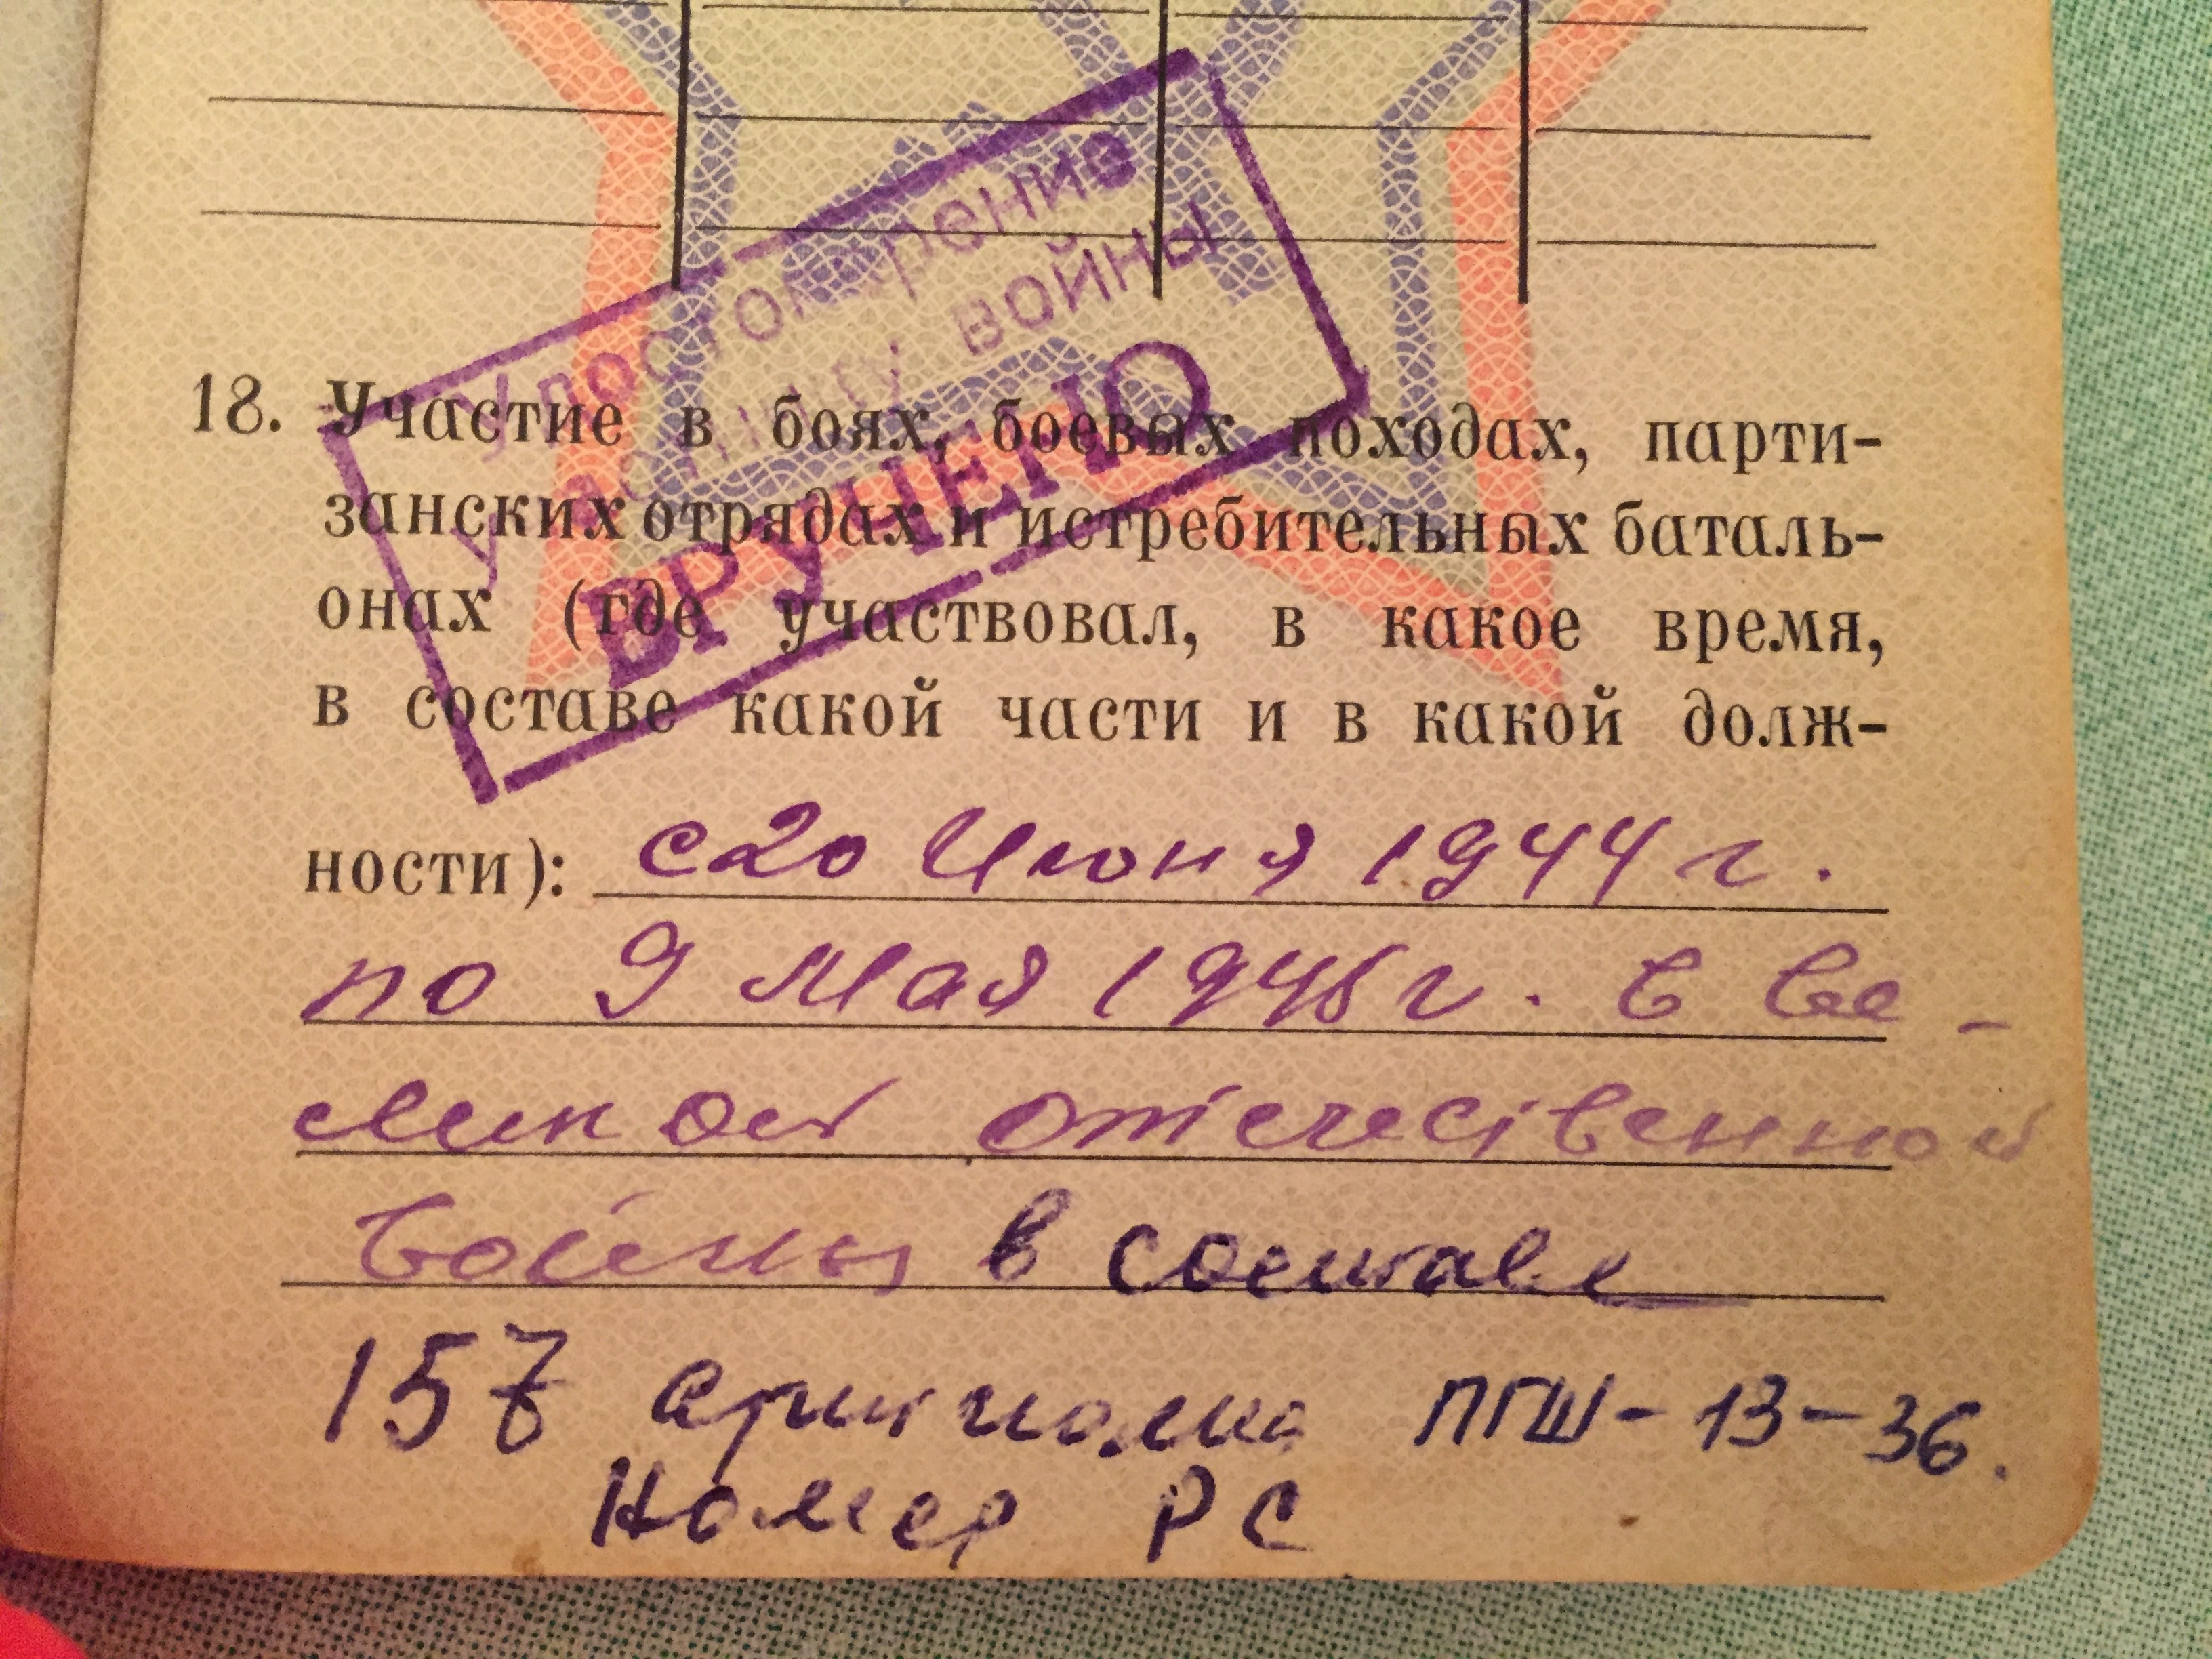 Удостоверение
участнику войны
ВРУЧЕНО
18. Участие в боях, боевых походах, парти-
занских отрядах и истребительных баталь-
онах (где участвовал, в какое время,
в составе какой части и в какой долж-
ности): с 20 Июня 1944 г.
по 9 Мая 1945 г. в Ве-
ликой отечественной
войны в составе
157 артполка ПГШ-13-36.
Номер РС